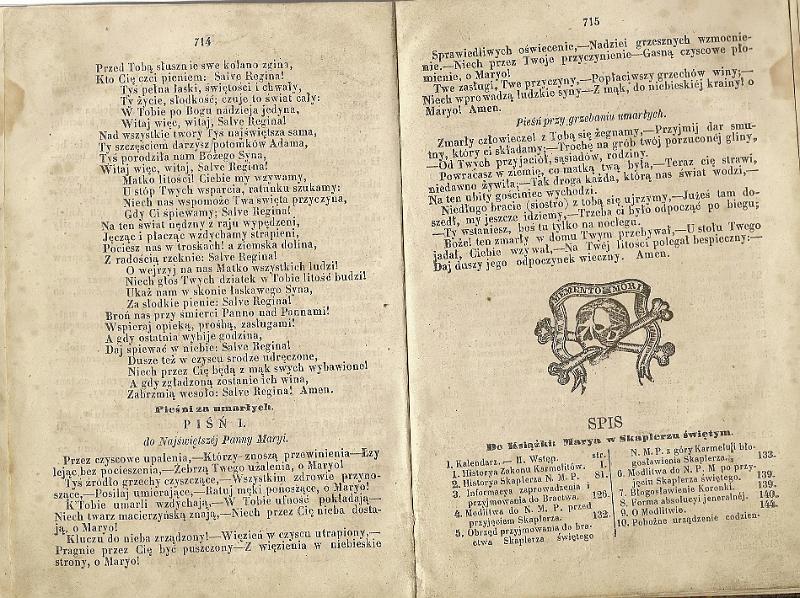 714
Przed Tobą słusznie swe kolano zgina,
Kto Cię czci pieniem: Salve Regina!
Tyś pełna łaski, świętości i chwały,
Ty życie, słodkość; czuje to świat cały:
W Tobie po Bogu nadzieja jedyna,
Witaj więc, witaj, Salve Regina!
Nad wszystkie twory Tyś najświętsza sama,
Ty szczęściem darzysz potomków Adama,
Tyś porodziła nam Bożego Syna,
Witaj więc, witaj, Salve Regina!
Matko litości! Ciebie my wzywamy,
U stóp Twych wsparcia, ratunku szukamy:
Niech nas wspomoże Twa święta przyczyna,
Gdy Ci śpiewamy; Salve Regina!
Na ten świat nędzny z raju wypędzeni,
Jęcząc i płacząc wzdychamy strapieni,
Pociesz nas w troskach! a ziemska dolina,
Z radością rzeknie: Salve Regina!
O wejrzyj na nas Matko wszystkich ludzi!
Niech głos Twych dziatek w Tobie litość budzi!
Ukaż nam w skonie łaskawego Syna,
Za słodkie pienie: Salve Regina!
Broń nas przy śmierci Panno nad Pannami!
Wspieraj opieką, prośbą, zasługami!
A gdy ostatnia wybije godzina,
Daj śpiewać w niebie: Salve Regina!
Dusze też w czyscu srodze udręczone,
Niech przez Cię będą z mąk swych wybawione!
A gdy zgładzoną zostanie ich wina,
Zabrzmią wesoło: Salve Regina! Amen.
Pieśni za umarłych.
PIŚŃ I.
do Najświętszéj Panny Maryi.
Przez czyscowe upalenia,—Którzy znoszą przewinienia—Łzy
lejąc bez pocieszenia,—Żebrzą Twego użalenia, o Maryo!
Tyś źródło grzechy czyszczące,—Wszystkim zdrowie przyno-
szące,—Posilaj umierające,—Ratuj męki ponoszące, o Maryo!
K Tobie umarli wzdychają,—W Tobie ufność pokładają—
Niech twarz macierzyńską znają,—Niech przez Cię nieba dosta-
ją, o Maryo!
Kluczu do nieba zrządzony!—Więzień w czyscu utrapiony,—
Pragnie przez Cię być puszczony—Z więzienia w niebieskie
strony, o Maryo!
715
Sprawiedliwych oświecenie,—Nadziei grzesznych wzmocnie-
nie.—Niech przez Twoje przyczynienie—Gasną czyscowe pło-
mienie, o Maryo!
Twe zasługi, Twe przyczyny,—Popłaciwszy grzechów winy;—
Niech wprowadzą ludzkie syny—Z mąk, do niebieskiéj krainy! o
Maryo! Amen.
Pieśń przy grzebaniu umarłych.
Zmarły człowiecze! z Tobą się żegnamy,—Przyjmij dar smu-
tny, który ci składamy;—Trochę na grób twój porzuconéj gliny,
—Od Twych przyjaciół, sąsiadów, rodziny.
Powracasz w ziemię, co matką twą była,—Teraz cię strawi,
niedawno żywiła;—Tak droga każda, którą nas świat wodzi,—
Na ten ubity gościniec wychodzi.
Niedługo bracie (siostro) z tobą się ujrzymy,—Jużeś tam do-
szedł, my jeszcze idziemy,—Trzeba ci było odpocząć po biegu;
—Ty wstaniesz, boś tu tylko na noclegu.
Boże! ten zmarły w domu Twym przebywał,—U stołu Twego
jadał, Ciebie wzywał,—Na Twéj litości polegał bezpieczny:—
Daj duszy jego odpoczynek wieczny. Amen.
MEMENTO MORI
SPIS
Do Książki: Marya w Skaplerzu świętym.
1. Kalendarz.— II. Wstęp. str.
1. Historya Zakonu Karmelitów. 1.
2. Historya Szkaplerza N. M. P. 81.
3. Informacya zaprowadzenia i
przyjmowania do Bractwa. 126.
4. Modlitwa do N. M. P. przed
przyjęciem Skaplerza. 132.
5. Obrzęd przyjmowania do bra-
ctwa Skaplerza świętego
N. M. P. z góry Karmelu i bło-
gosławienia Skaplerza. 133.
6. Modlitwa do N. P. M po przy-
jęciu Skaplerza świętego. 139.
7. Błogosławienie Koronki. 139.
8. Forma absolucyi jeneralnéj. 140.
9. O Modlitwie. 144.
10. Pobożne urządzenie codzien-